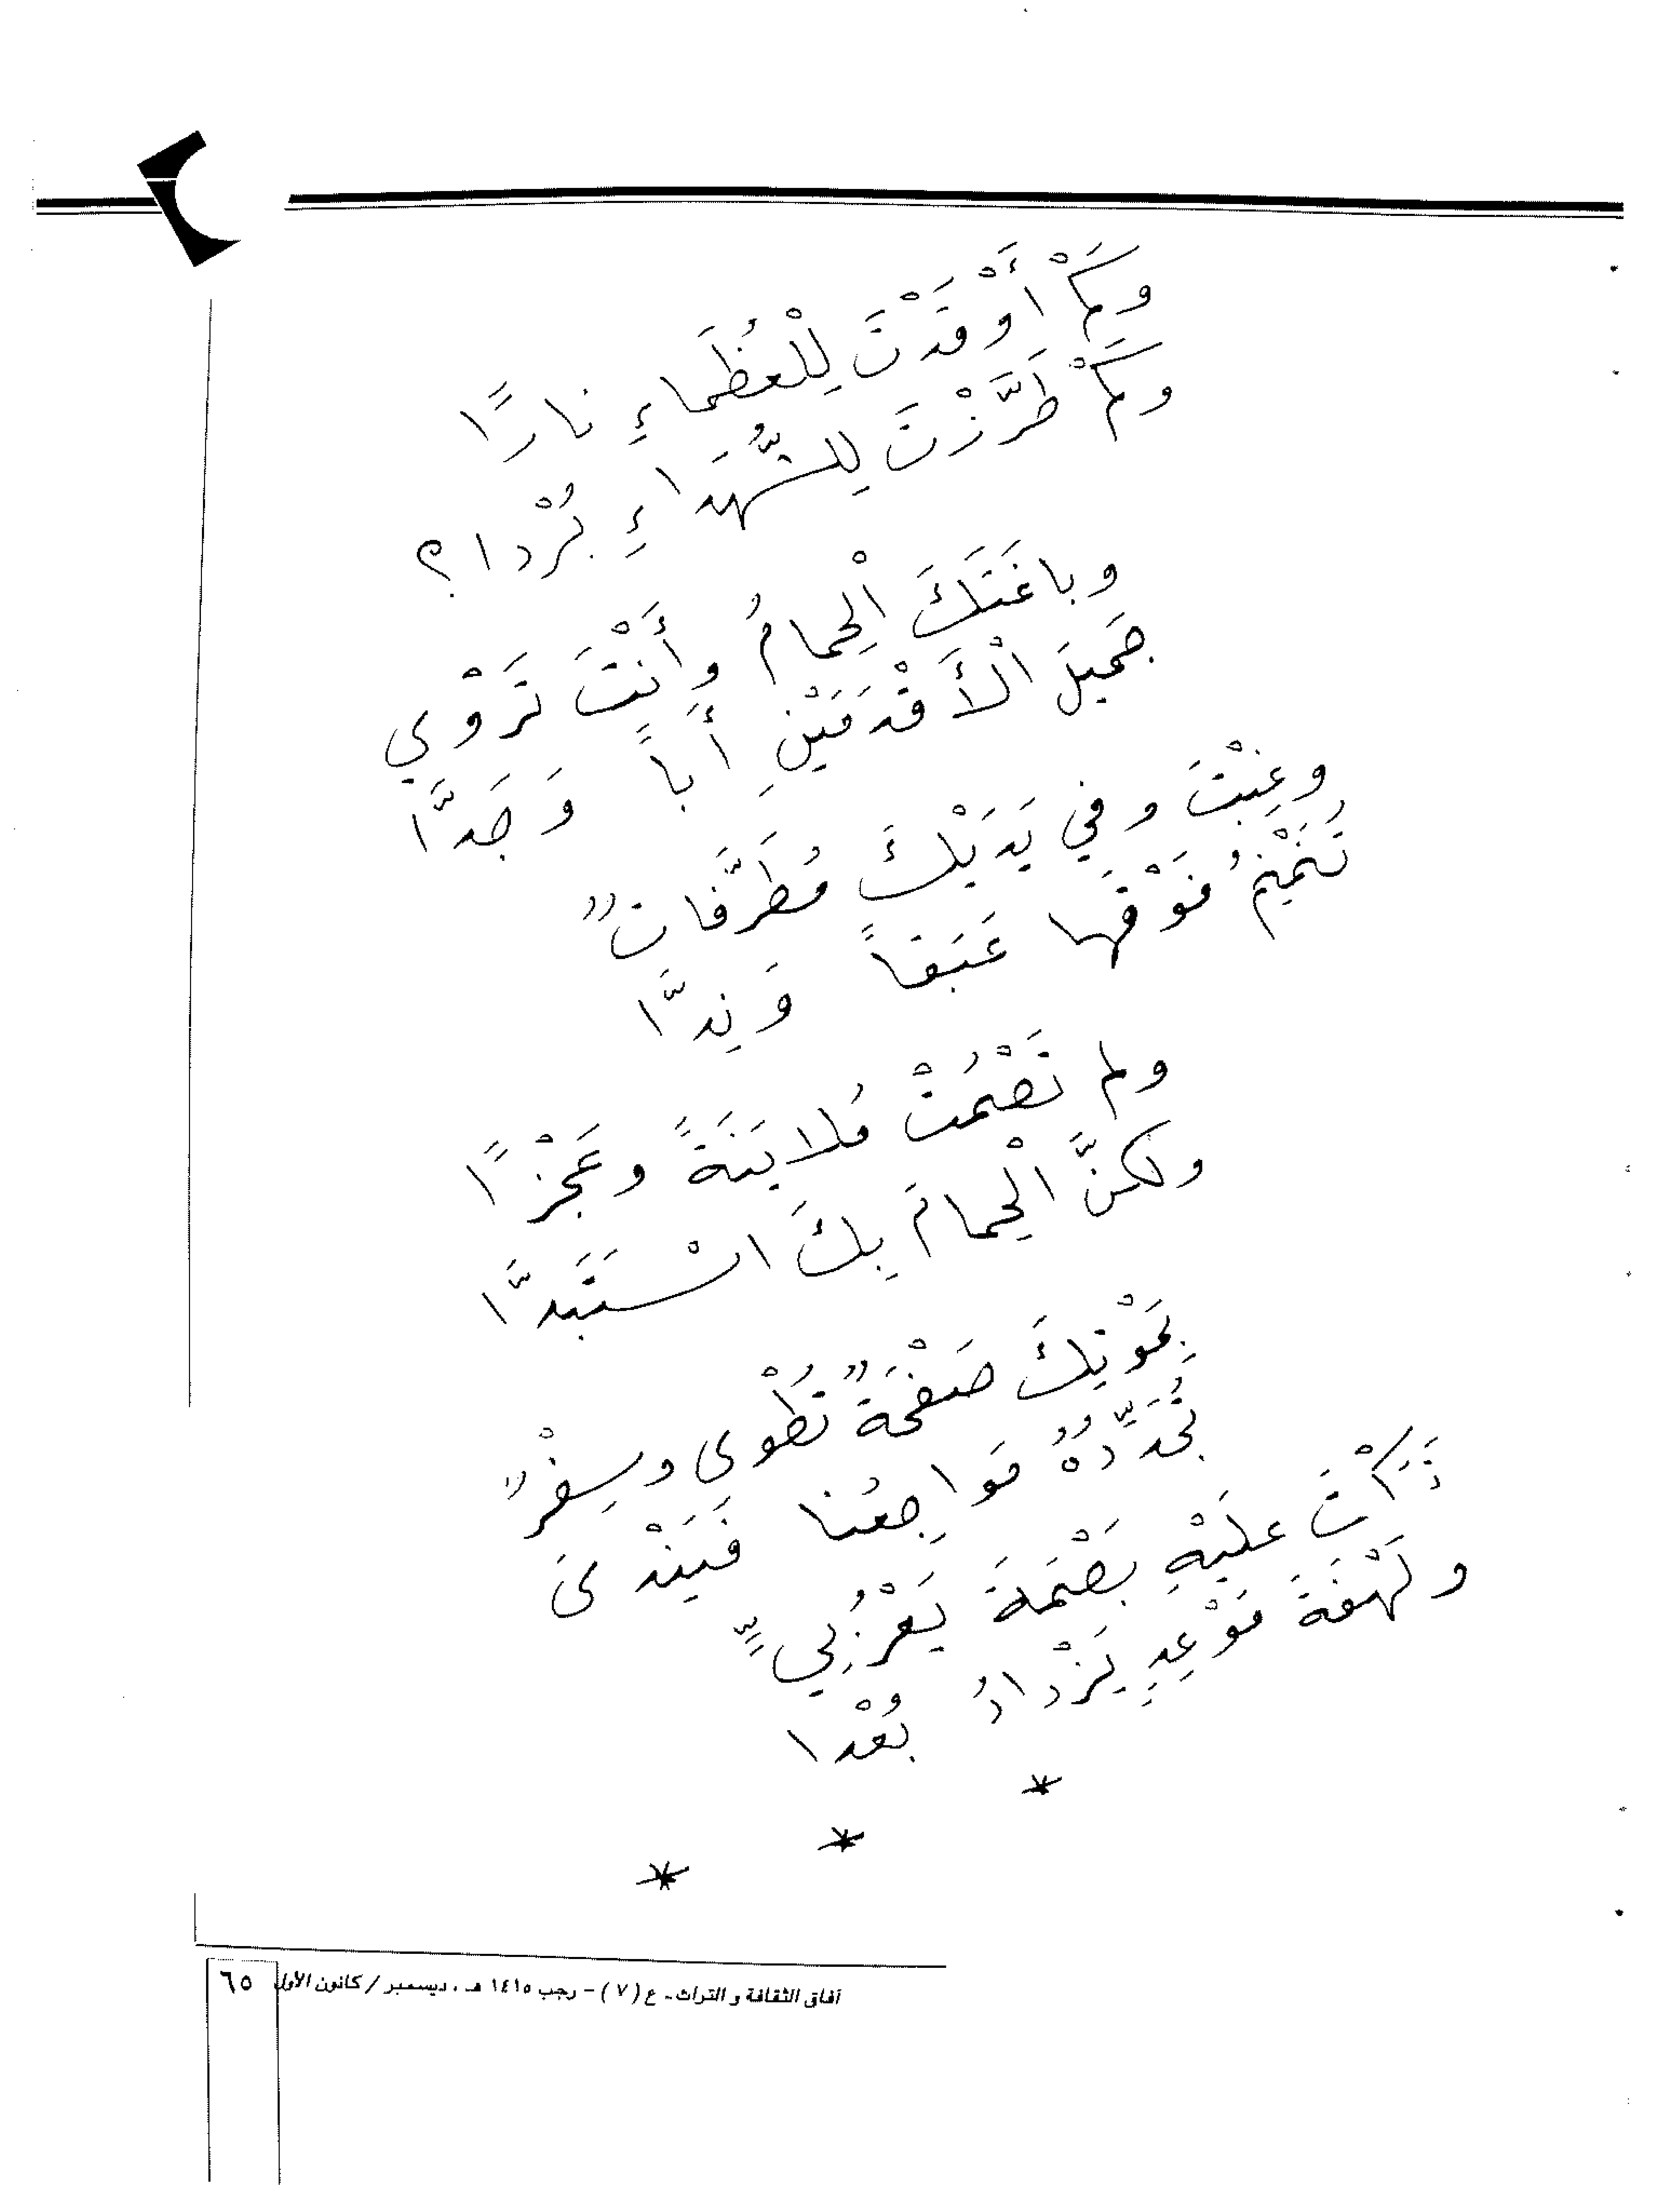 وَكَمْ أَوْقَدْتَ لِلْعُظَماءِ نارًا
وكَمْ طَرَّزْتَ لِلشُّهَداءِ بُرْدا؟
وباغَتَكَ الْحِمامُ وأَنْتَ تَرْوي
جَميلَ الْأَقْدَمَيْنِ أَباً وَجَدَّا
وغِبْتَ وفي يَدَيْكَ مُطَرَّفاتٌ
تُنَمْنِمُ فَوْقَها عَبَقاً وَنِدَّا
ولم تَصْمُتْ مُلايَنَةً وعَجْزًا
ولكنَّ الْحِمامَ بِكَ اسْتَبَدَّا
بِمَوْتِكَ صَفْحَةٌ تُطْوى وسِفْرٌ
تُجَدِّدُهُ مَواجِعُنا فَيَنْدى
تَرَكْتَ عليْهِ بَصْمَةَ يَعْرُبِيٍّ
ولَهْفَةَ مَوْعِدٍ يَزْدادُ بُعْدا
* * *
آفاق الثقافة والتراث - ع (٧) - رجب ١٤١٥ هـ ، ديسمبر / كانون الأول ٦٥